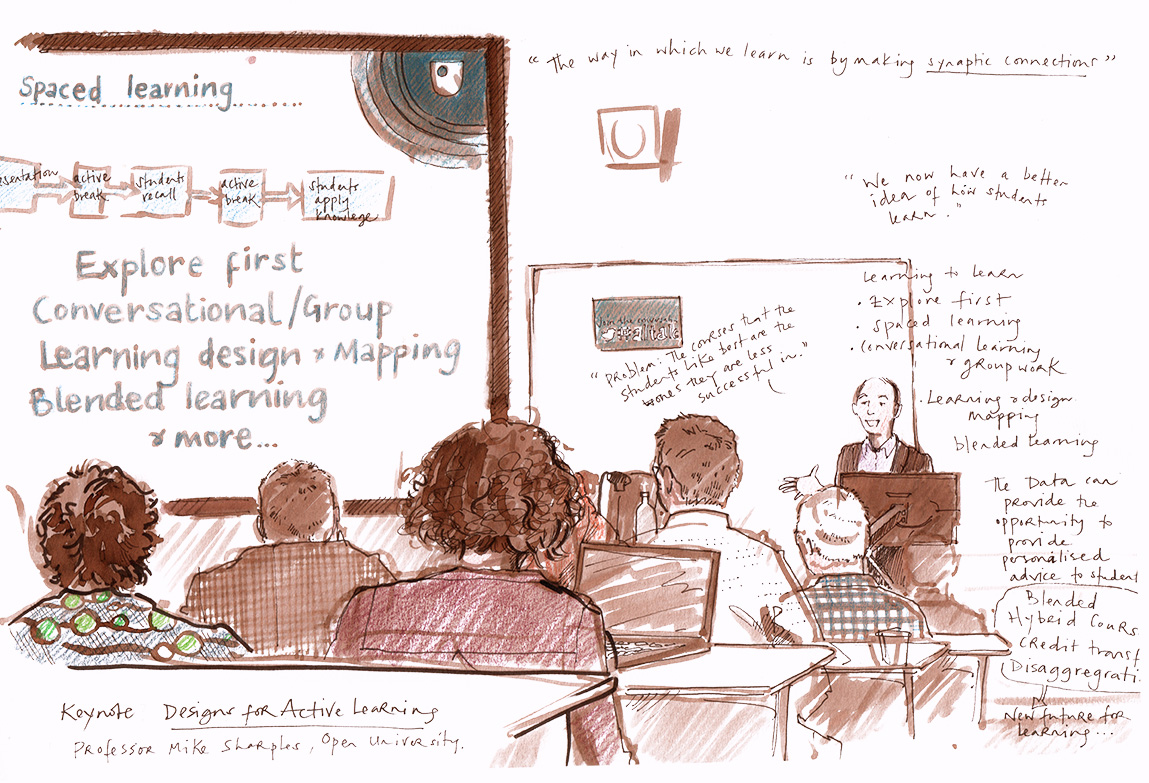 Spaced learning
esentation
active
break
students
recall
active
break
students
apply
knowlege
Explore first
Conversational/Group
Learning design & Mapping
Blended learning
& more...
"The way in which we learn is by making synaptic connections"
"We now have a better
idea of how students
learn."
Learning to learn
• Explore first
• spaced learning
• conversational learning
& group work
• Learning & design
mapping
blended learning
#altalc
"Problem: The courses that the
students like best are the
ones they are less
successful in."
The Data can
provide the
opportunity to
provide
personalised
advice to student
Blended
Hybrid Cours
credit transf
Disaggregrati
New future for
learning...
Keynote Designs for Active Learning
Professor Mike Sharples, Open University.